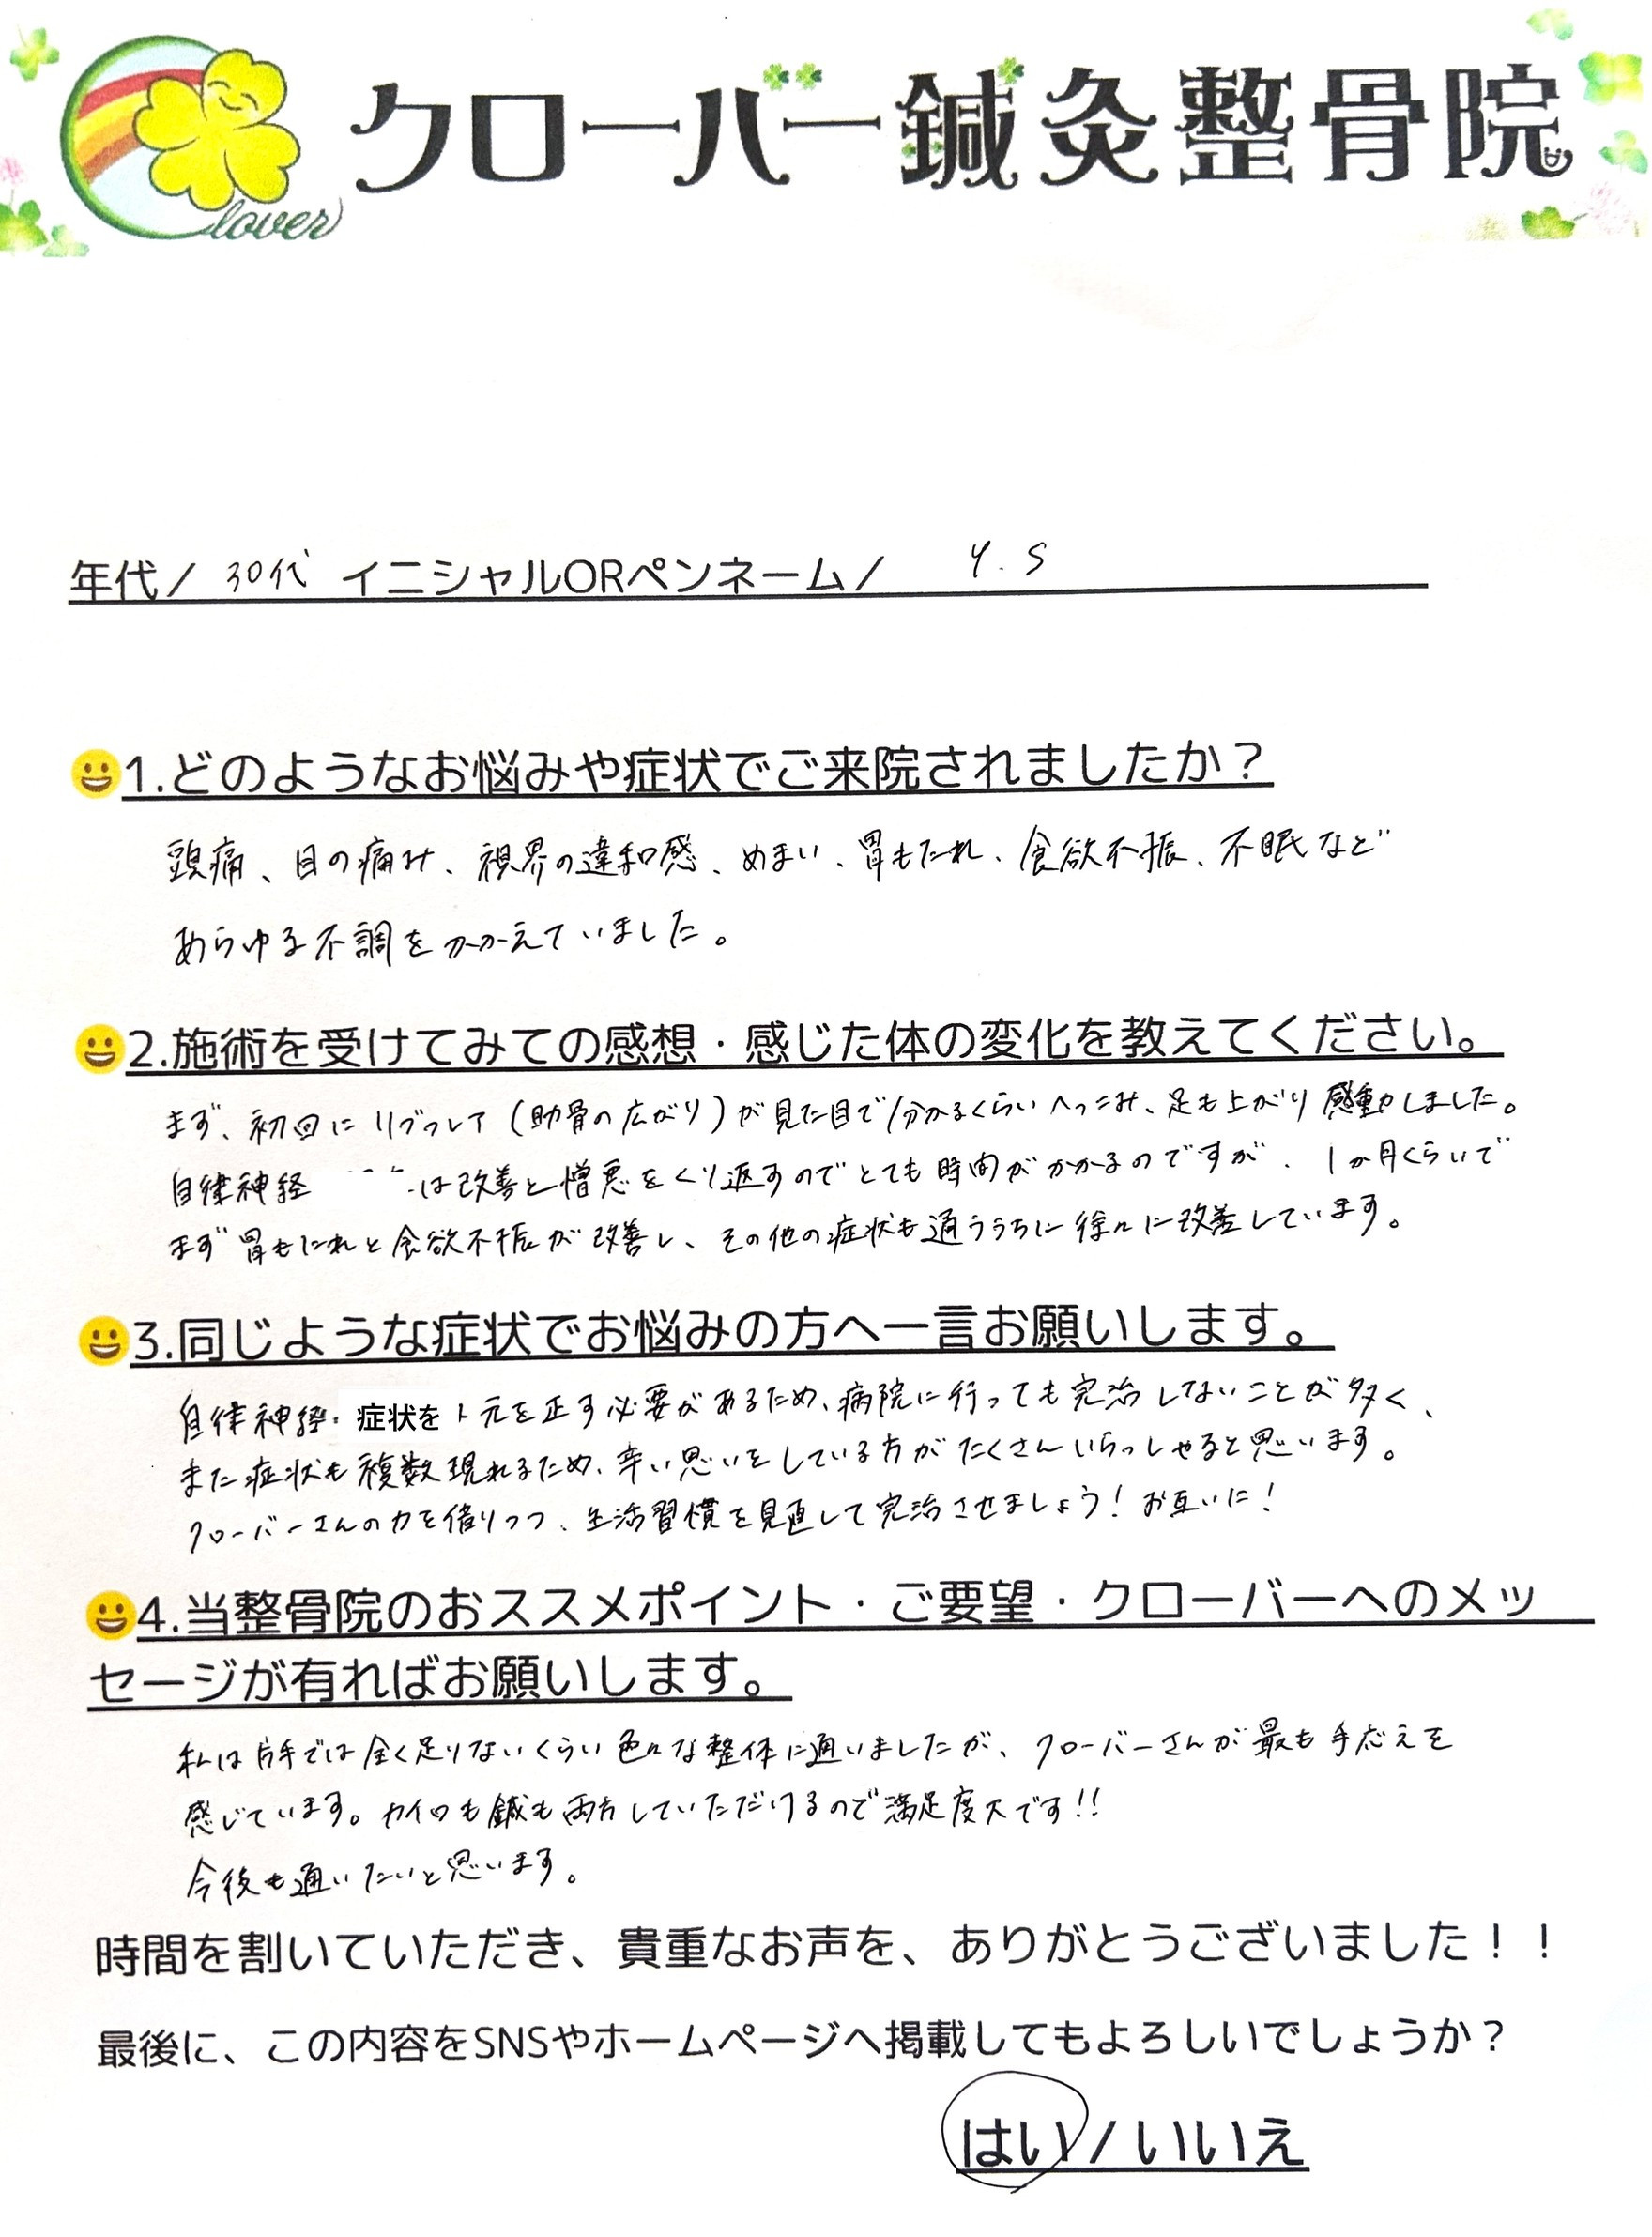 Clover
クローバー鍼灸整骨院
年代/ 30代 イニシャルORペンネーム/ Y.S
1.どのようなお悩みや症状でご来院されましたか?
頭痛、目の痛み、視界の違和感、めまい、胃もたれ、食欲不振、不眠など
あらゆる不調をかかえていました。
2.施術を受けてみての感想・感じた体の変化を教えてください。
まず、初回にリブフレア(肋骨の広がり)が見た目で分かるくらいへっこみ、足も上がり感動しました。
自律神経 は改善と憎悪をくり返すのでとても時間がかかるのですが、1か月くらいで
まず胃もたれと食欲不振が改善し、その他の症状も通ううちに徐々に改善しています。
3.同じような症状でお悩みの方へ一言お願いします。
自律神経 症状を 元を正す必要があるため、病院に行っても完治しないことが多く、
また症状も複数現れるため、辛い思いをしている方がたくさんいらっしゃると思います。
クローバーさんの力を借りつつ、生活習慣を見直して完治させましょう!お互いに!
4.当整骨院のおススメポイント・ご要望・クローバーへのメッ
セージが有ればお願いします。
私は片手では全く足りないくらい色々な整体に通いましたが、クローバーさんが最も手応えを
感じています。カイロも鍼も両方していただけるので満足度大です!!
今後も通いたいと思います。
時間を割いていただき、貴重なお声を、ありがとうございました!!
最後に、この内容をSNSやホームページへ掲載してもよろしいでしょうか?
はい/いいえ